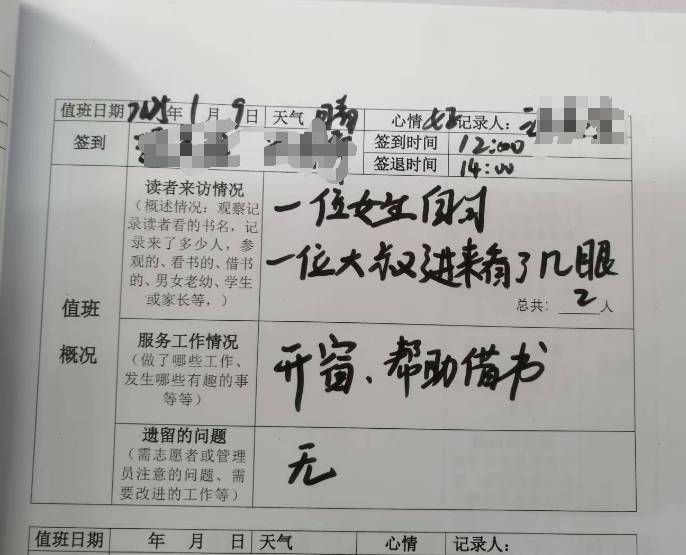 值班日期 2025年1月9日 天气 晴 心情 好 记录人：
签到 签到时间 12:00
签退时间 14:00
值班概况
读者来访情况
（概述情况：观察记
录读者看的书名，记
录来了多少人，参
观的、看书的、借书
的、男女老幼、学生
或家长等，）
一位女生自习
一位大叔进来看了几眼
总共：2人
服务工作情况
（做了哪些工作、
发生哪些有趣的事
等等）
开窗、帮助借书
遗留的问题
（需志愿者或管理
员注意的问题、需
要改进的工作等）
无
值班日期 年 月 日 天气 心情 记录人：